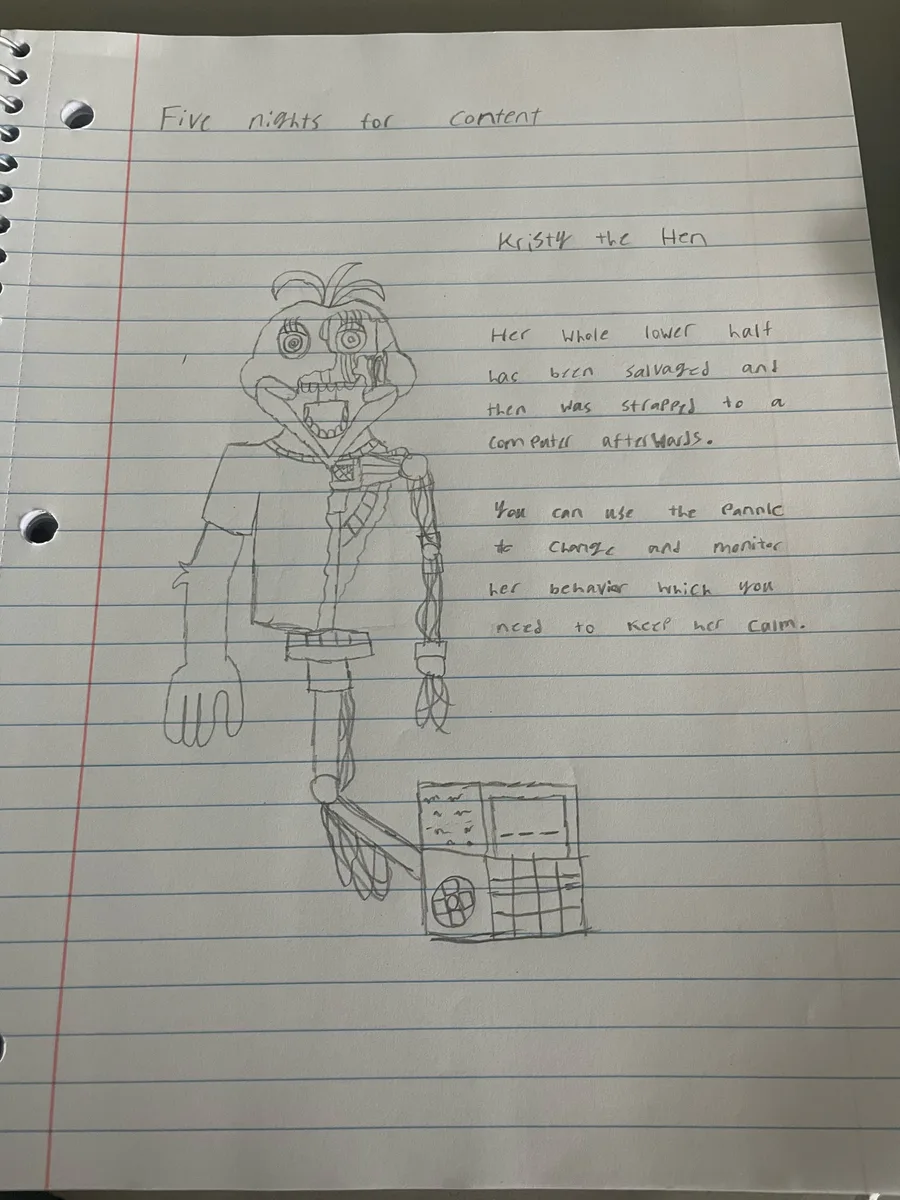 Five nights for content
Kristy the Hen
Her whole lower half
has been salvaged and
then was strapped to a
computer afterwards.
You can use the Pannle
to change and monitor
her behavior which you
need to keep her calm.